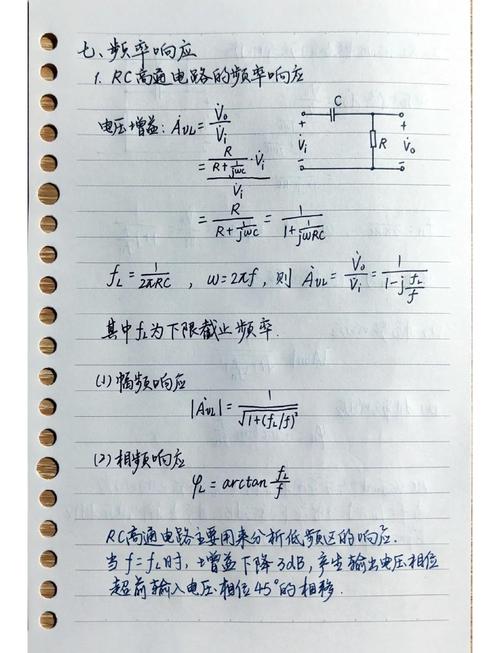 七、频率响应
1. RC高通电路的频率响应
电压增益: Ȧ_VL = V̇o / V̇i
= (R / (R + 1/jωC) · V̇i) / V̇i
= R / (R + 1/jωC) = 1 / (1 + 1/jωRC)
C
R
+ V̇i -
+ V̇o -
f_L = 1/2πRC , ω=2πf , 则 Ȧ_VL = V̇o/V̇i = 1 / (1 - j f_L/f)
其中f_L为下限截止频率.
(1) 幅频响应
|Ȧ_VL| = 1 / √(1+(f_L/f)²)
(2) 相频响应
φ_L = arctan f_L/f
RC高通电路主要用来分析低频区的响应.
当f=f_L时, 增益下降3dB, 产生输出电压相位
超前输入电压相位45°的相移.